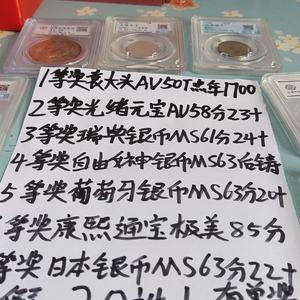 1等奖袁大头AU50T点年1700
2等奖光绪元宝AU58分23十
3等奖瑞典银币MS61分24十
4等奖自由钟银币MS63后铸
5等奖葡萄牙银币MS63分20十
等奖康熙通宝极美85分
等奖日本银币MS63分22十